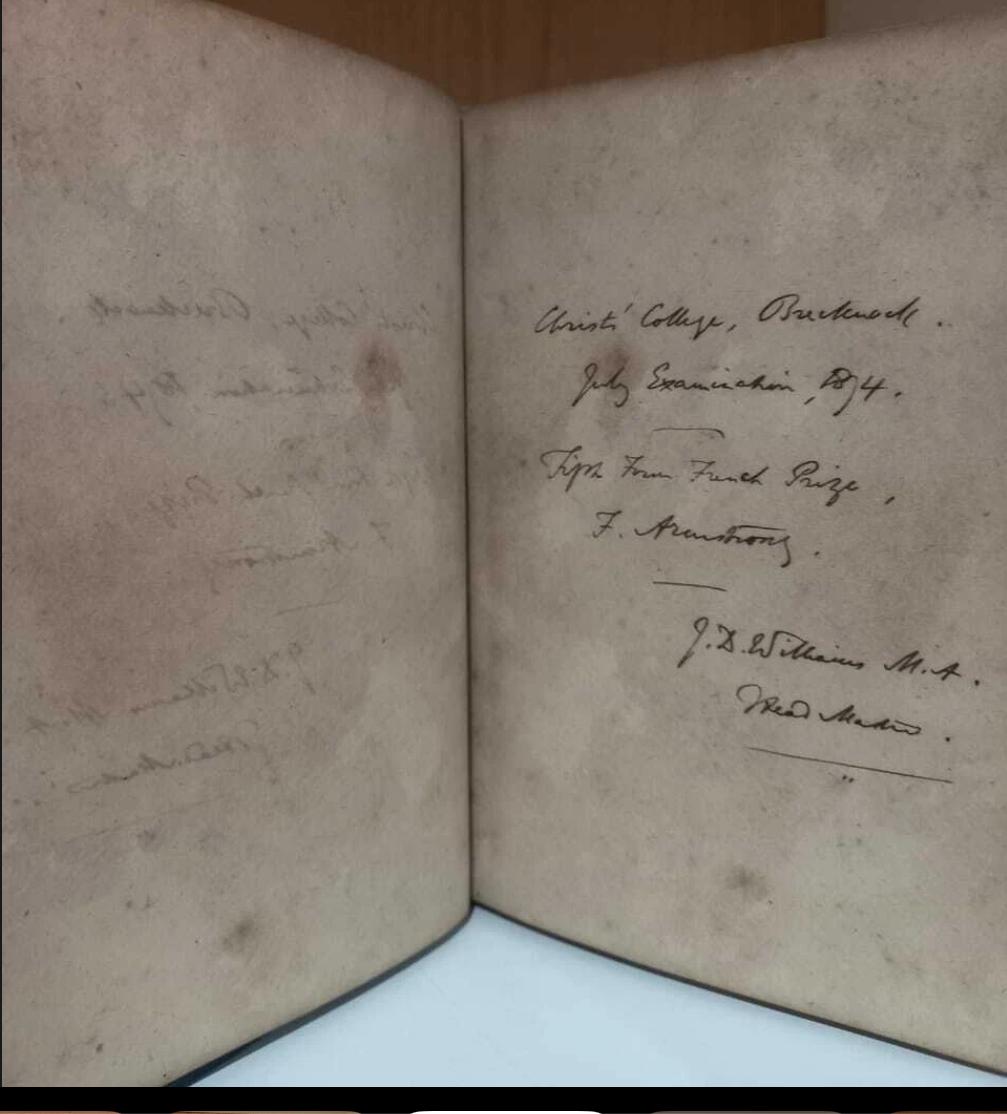 Christ's College, Brecknock.
July Examination, 1874.
Fifth Form French Prize,
F. Armstrong.
J. D. Williams M.A.
Head Master.